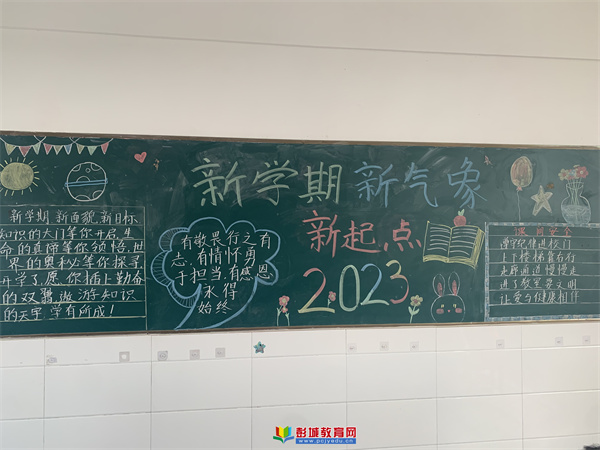 新学期 新气象
新起点
2023
新学期 新面貌 新目标
知识的大门等你开启,生
命的真谛等你领悟,世
界的奥秘等你探寻
开学了,愿你插上勤奋
的双翼,遨游知识
的天宇,学有所成!
有敬畏 行之有
志,有情怀 勇
于担当,有感恩
永得
始终
课间安全
遵守纪律进校门
上下楼梯靠右行
走廊通道慢慢走
进了教室要文明
让爱与健康相伴
彭城教育网
www.pcjyedu.cn